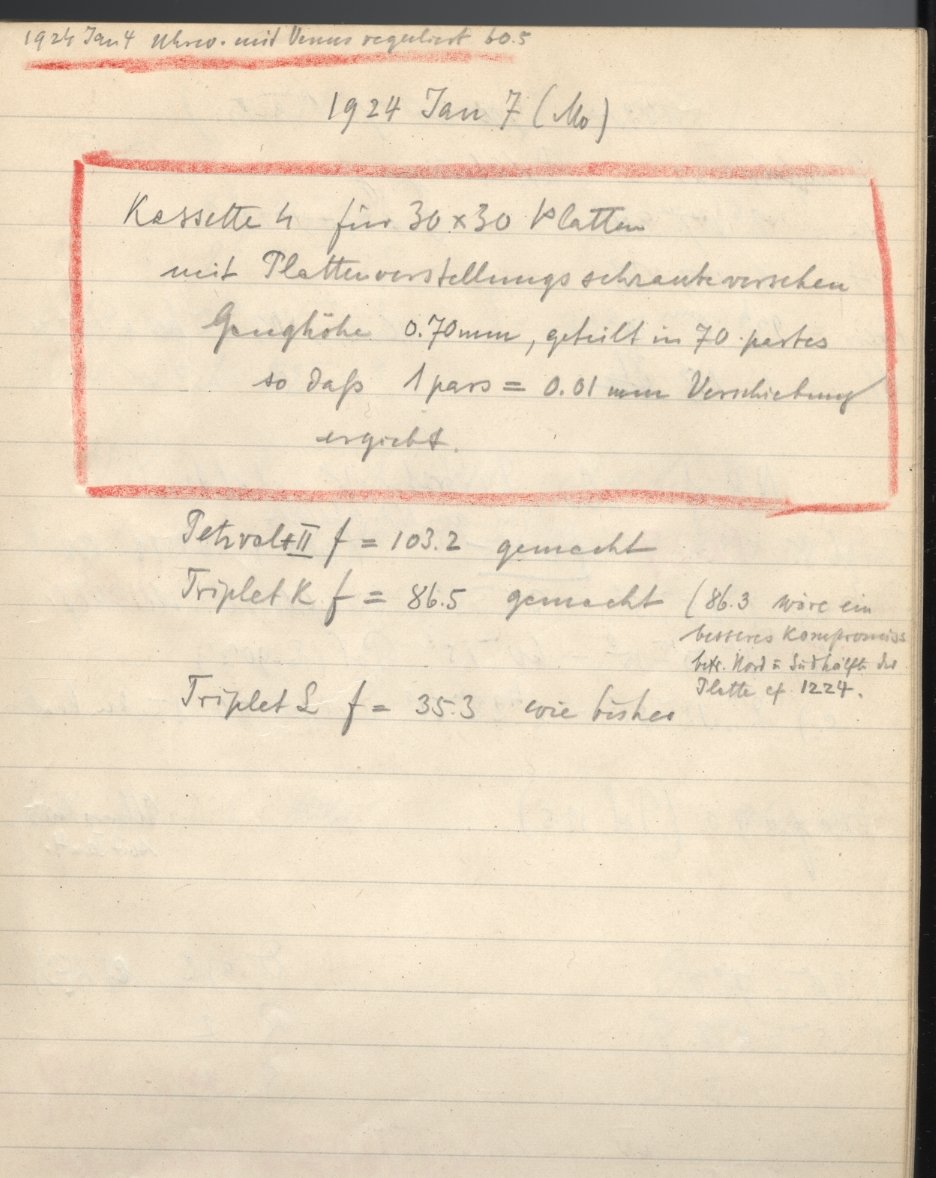 1924 Jan 4 Uhrw. mit Venus reguliert 60.5
1924 Jan 7 (Mo)
Kassette 4 für 30 x 30 Platten
mit Plattenverstellungsschraube versehen
Ganghöhe 0.70mm, geteilt in 70 partes
so daß 1 pars = 0.01 mm Verschiebung
ergiebt.
Petzval II f = 103.2 gemacht
Triplet K f = 86.5 gemacht (86.3 wäre ein
besseres Kompromiss
betr. Nord u Südhälfte der
Platte cf. 1224.
Triplet L f = 35.3 wie bisher